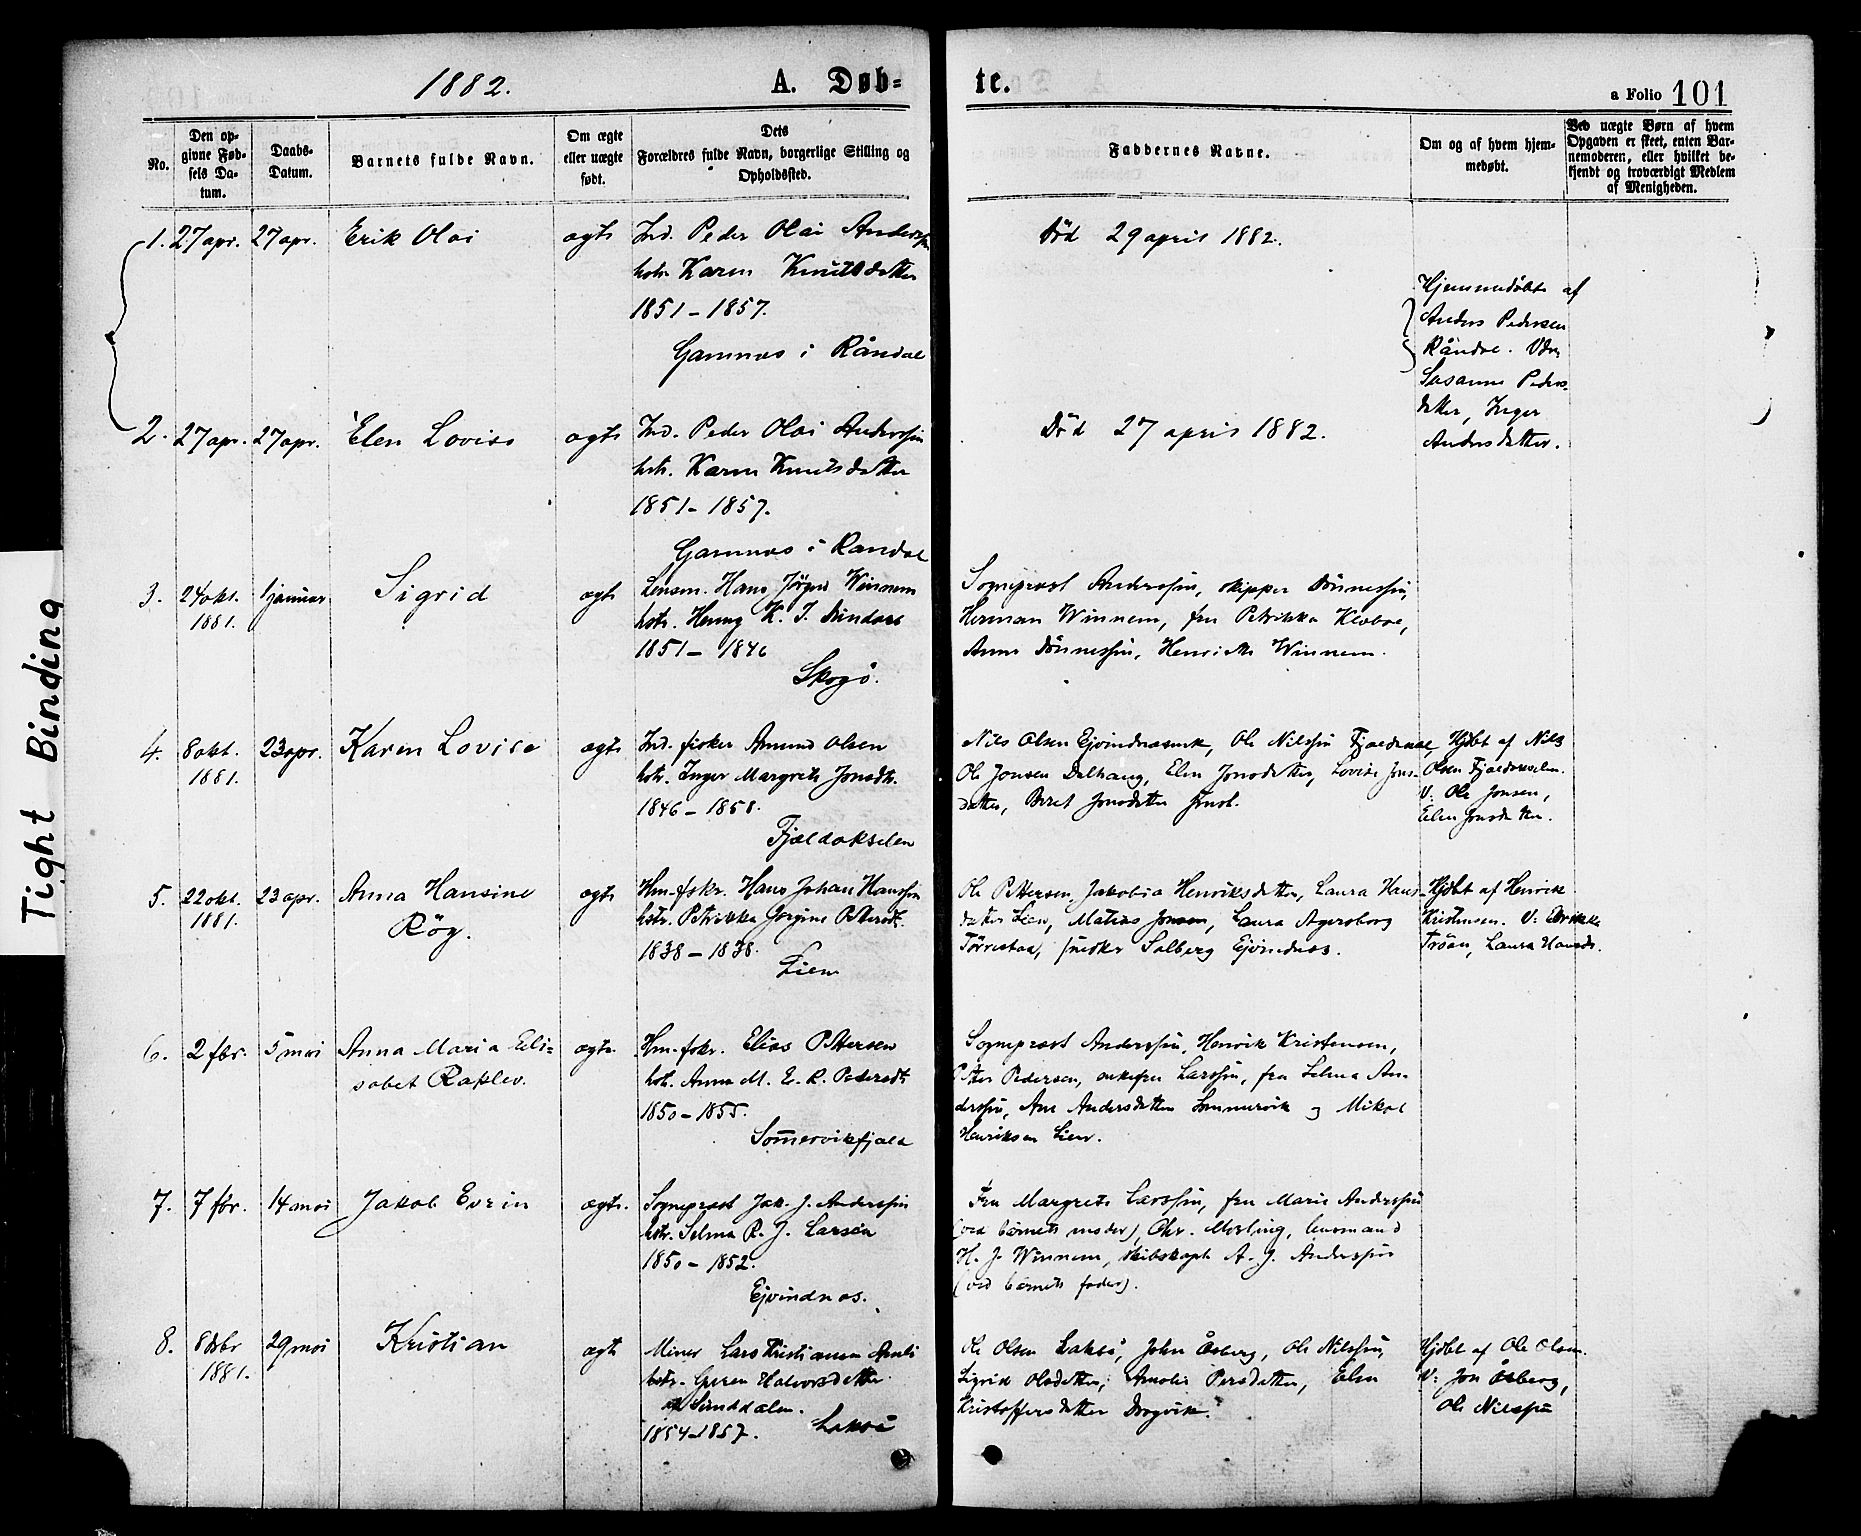 1882.
A. Døb=
te.
a Folio 101
No.
Den op-
givne Fød-
sels Da-
tum.
Daabs-
Datum.
Barnets fulde Navn.
Om ægte
eller uægte
født.
Dets
Forældres fulde Navn, borgerlige Stilling og
Opholdssted.
Faddernes Navne.
Om og af hvem hjem-
medøbt.
Ved uægte Børn af hvem
Opgaven er skeet, enten Bar-
nemoderen, eller hvilket be-
kjendt og troværdigt Medlem
af Menigheden.
1. 27 apr. 27 apr. Erik Olai ægte Ind. Peder Olai Anderssn
hstr. Karen Knutsdatter
1851 - 1857.
Gamnæs i Råndal
Död 29 april 1882.
Hjemmedøbt af
Anders Pedersen
Råndal. Vdn.
Susanne Peders-
datter, Inger
Andersdatter.
2. 27 apr. 27 apr. Elen Lovise ægte Ind. Peder Olai Anderssön
hstr. Karen Knutsdatter
1851 - 1857.
Gamnæs i Randal
Död 27 april 1882.
3. 24 okt. 1 januar Sigrid ægte Lensm. Hans Jörgen Winnem
1881. hstr. Henny K. J.
1851 - 1846
Skogö.
Sogneprest Anderssön, skipper Dönnessön,
Herman Winnem, fru Petrikka Klæboe,
Anna Dönnessön, Henrikke Winnem.
4. 8 okt. 23 apr. Karen Lovise ægte Ind. fisker Amund Olsen
1881. hstr. Inger Margrete Jonsdtr.
1846 - 1858.
Fjældakselen
Nils Olsen Ejvindnæsmk, Ole Nilssön Fjældaksel,
Ole Jonsen Dalhaug, Elen Jonsdatter, Lovise Jons-
datter, Beret Jonsdatter
Hjdbt af Nils
Olsen Fjældakselen.
V: Ole Jonsen,
Elen Jonsdatter.
5. 22 okt. 23 apr. Anna Hansine ægte Hm-fskr. Hans Johan Hanssön
1881. Röy. hstr. Petrikka Gorgine Pettersdt.
1838 - 1838.
Lien
Ole Pettersen, Jakobia Henriksdatter, Laura Hans-
datter Lien, Matias Jonsen, Laura Agersborg
Törrestad, Solberg Ejvindnæs.
Hjdbt af Henrik
Kristensen. V:
Tröan, Laura Hansdr.
6. 2 fbr. 5 mai Anna Maria Eli= ægte. Hm-fskr. Elias Pettersen
sabet Raklev. hstr. Anna M. E. R. Pedersdt.
1850 - 1855.
Somervikfjæla
Sogneprest Anderssön, Henrik Kristensen,
Petter Pedersen, enkefru Larssön, fru Selma An-
derssön, Ane Andersdatter Sommervik og Mikal
Henriksen Lien.
7. 7 fbr. 14 mai Jakob Evrin ægte. Sogneprest Jak. J. Anderssön
hstr. Selma R. J. Larsen
1850 - 1852.
Ejvindnæs.
Fru Margrete Larssön, fru Marie Anderssön
(ved barnets moder), Chr. Mörling, lensmand
H. J. Winnem, skibskapt A. J. Anderssön
(ved barnets fader).
8. 8 dsbr 29 mai Kristian ægte Miner Lars Kristiansen
1881. hstr. Guren Halvorsdatter
Sunddalen.
1854-1857. Laksö
Ole Olsen Laksö, John Åsberg, Ole Nilssön,
Sigrid Olsdatter, Amalie Persdatter, Elen
Kristoffersdatter Dragvik.
Hjdbt af Ole Olsen.
V: Jon Åsberg,
Ole Nilssön
Tight Binding